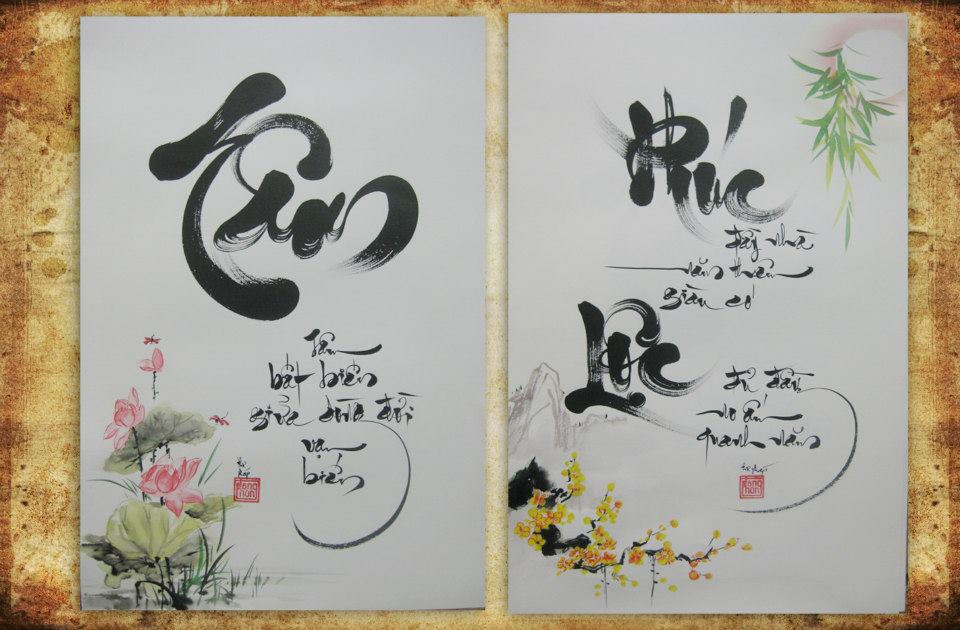 Tâm
Tâm
bất biến
giữa dòng đời
vạn
biến
Phúc
đầy nhà
năm thêm
giàu có
Lộc
đủ đầy
no ấm
quanh năm